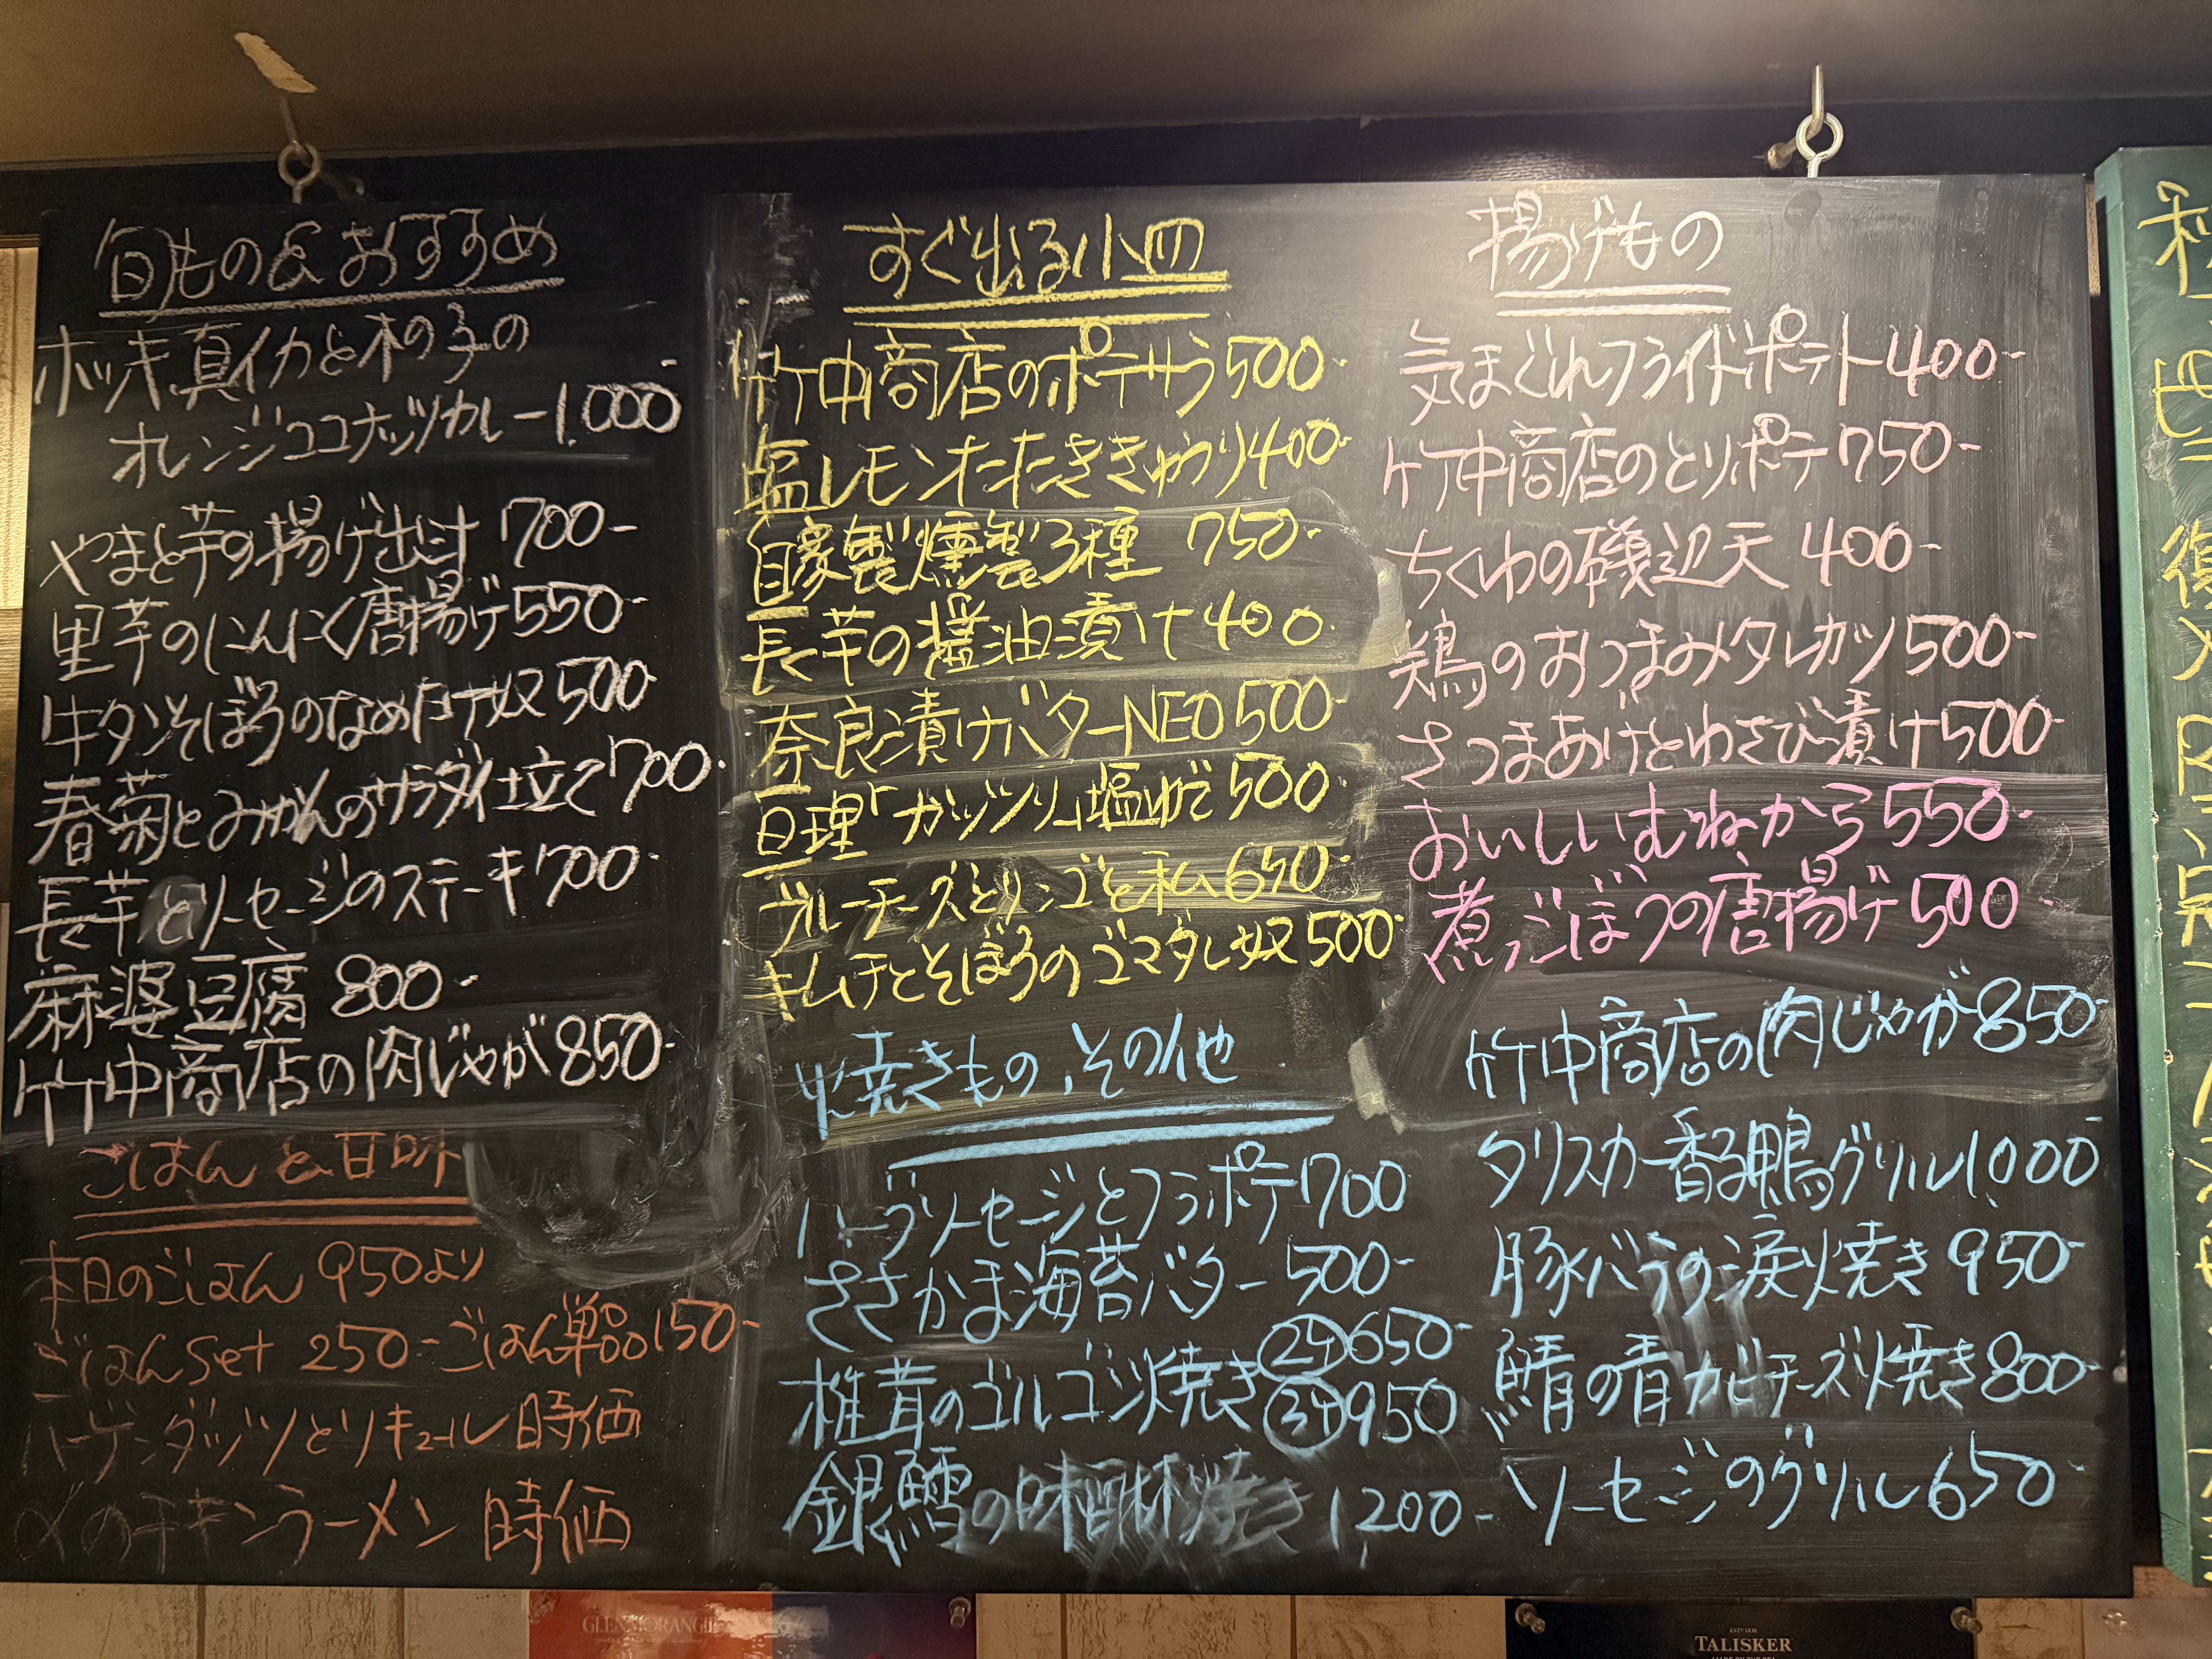 旬もの&おすすめ
ホッキ、真イカと木の子の
オレンジココナッツカレー1.000-
やまと芋の揚げ出汁 700-
里芋のにんにく唐揚げ550-
牛タンそぼろのなめ茸奴500-
春菊とみかんのサラダ仕立て700-
長芋とソーセージのステーキ700-
麻婆豆腐 800-
竹中商店の肉じゃが850-
ごはんと甘味
本日のごはん 950より
ごはんset 250-ごはん単品150-
ハーゲンダッツとリキュール 時価
〆のチキンラーメン 時価
すぐ出る小皿
竹中商店のポテサラ500-
塩レモンたたききゅうり400-
自家製燻製3種 750-
長芋の醤油漬け400-
奈良漬けバターNEO500-
亘理「ガッツリ」塩ゆで500-
ブルーチーズとリンゴと私650-
キムチとそぼろのゴマダレ奴500-
焼きもの、その他
ハーブソーセージとフラポテ700
ささかま海苔バター500-
椎茸のゴルゴンゾ焼き
650-
950
銀鱈の味 焼き 1200-
揚げもの
気まぐれフライドポテト400-
竹中商店のとりポテ750-
ちくわの磯辺天 400-
鶏のおつまみタレカツ500-
さつまあげとわさび漬け500-
おいしいむねから550-
煮ごぼうの唐揚げ500-
竹中商店の肉じゃが850-
タリスカー香る鴨グリル1.000-
豚バラの涙焼き 950-
鯖の青カビチーズ焼き800-
ソーセージのグリル650-
復
GLENMORANGIE
TALISKER